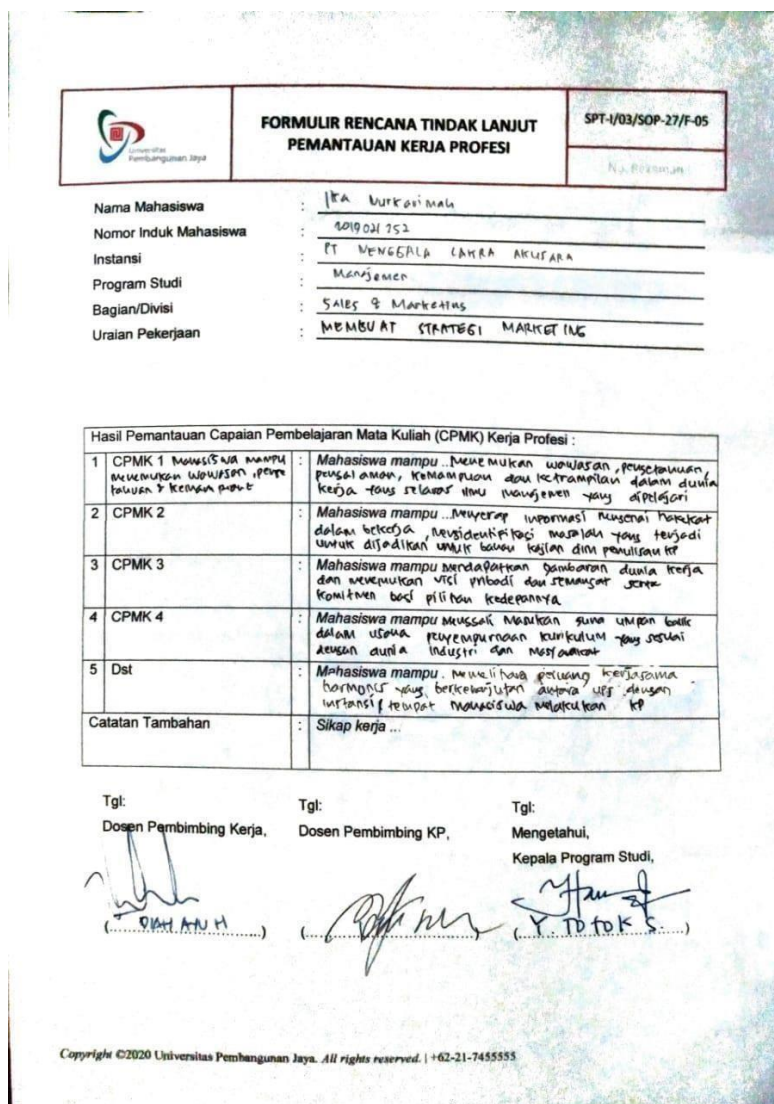 Universitas
Pembangunan Jaya
FORMULIR RENCANA TINDAK LANJUT
PEMANTAUAN KERJA PROFESI
SPT-I/03/SOP-27/F-05
No. Rekaman
Nama Mahasiswa : Ika Nurkarimah
Nomor Induk Mahasiswa : 2019021252
Instansi : PT NENGGALA CAKRA AKUSARA
Program Studi : Manajemen
Bagian/Divisi : Sales & Marketing
Uraian Pekerjaan : MEMBUAT STRATEGI MARKETING
Hasil Pemantauan Capaian Pembelajaran Mata Kuliah (CPMK) Kerja Profesi :
1 CPMK 1 Mahasiswa mampu
menemukan wawasan, penge
tahuan &
: Mahasiswa mampu ..Menemukan wawasan, pengetahuan,
pengalaman, kemampuan dan ketrampilan dalam dunia
kerja yang selaras ilmu manajemen yang dipelajari
2 CPMK 2 : Mahasiswa mampu ...Menyerap informasi mengenai hakekat
dalam bekerja, mengidentifikasi masalah yang terjadi
untuk dijadikan untuk bahan kajian dlm penulisan KP
3 CPMK 3 : Mahasiswa mampu mendapatkan gambaran dunia kerja
dan menemukan visi pribadi dan semangat serta
komitmen bagi pilihan kedepannya
4 CPMK 4 : Mahasiswa mampu Menggali Masukan guna umpan balik
dalam usaha penyempurnaan kurikulum yang sesuai
dengan dunia industri dan masyarakat
5 Dst : Mahasiswa mampu . Memelihara peluang kerjasama
harmonis yang berkelanjutan antara UPJ dengan
instansi tempat mahasiswa melakukan KP
Catatan Tambahan : Sikap kerja ...
Tgl: Tgl: Tgl:
Dosen Pembimbing Kerja, Dosen Pembimbing KP, Mengetahui,
Kepala Program Studi,
(..............) (..............) (Y. TOTOK S.....)
Copyright ©2020 Universitas Pembangunan Jaya. All rights reserved. | +62-21-7455555